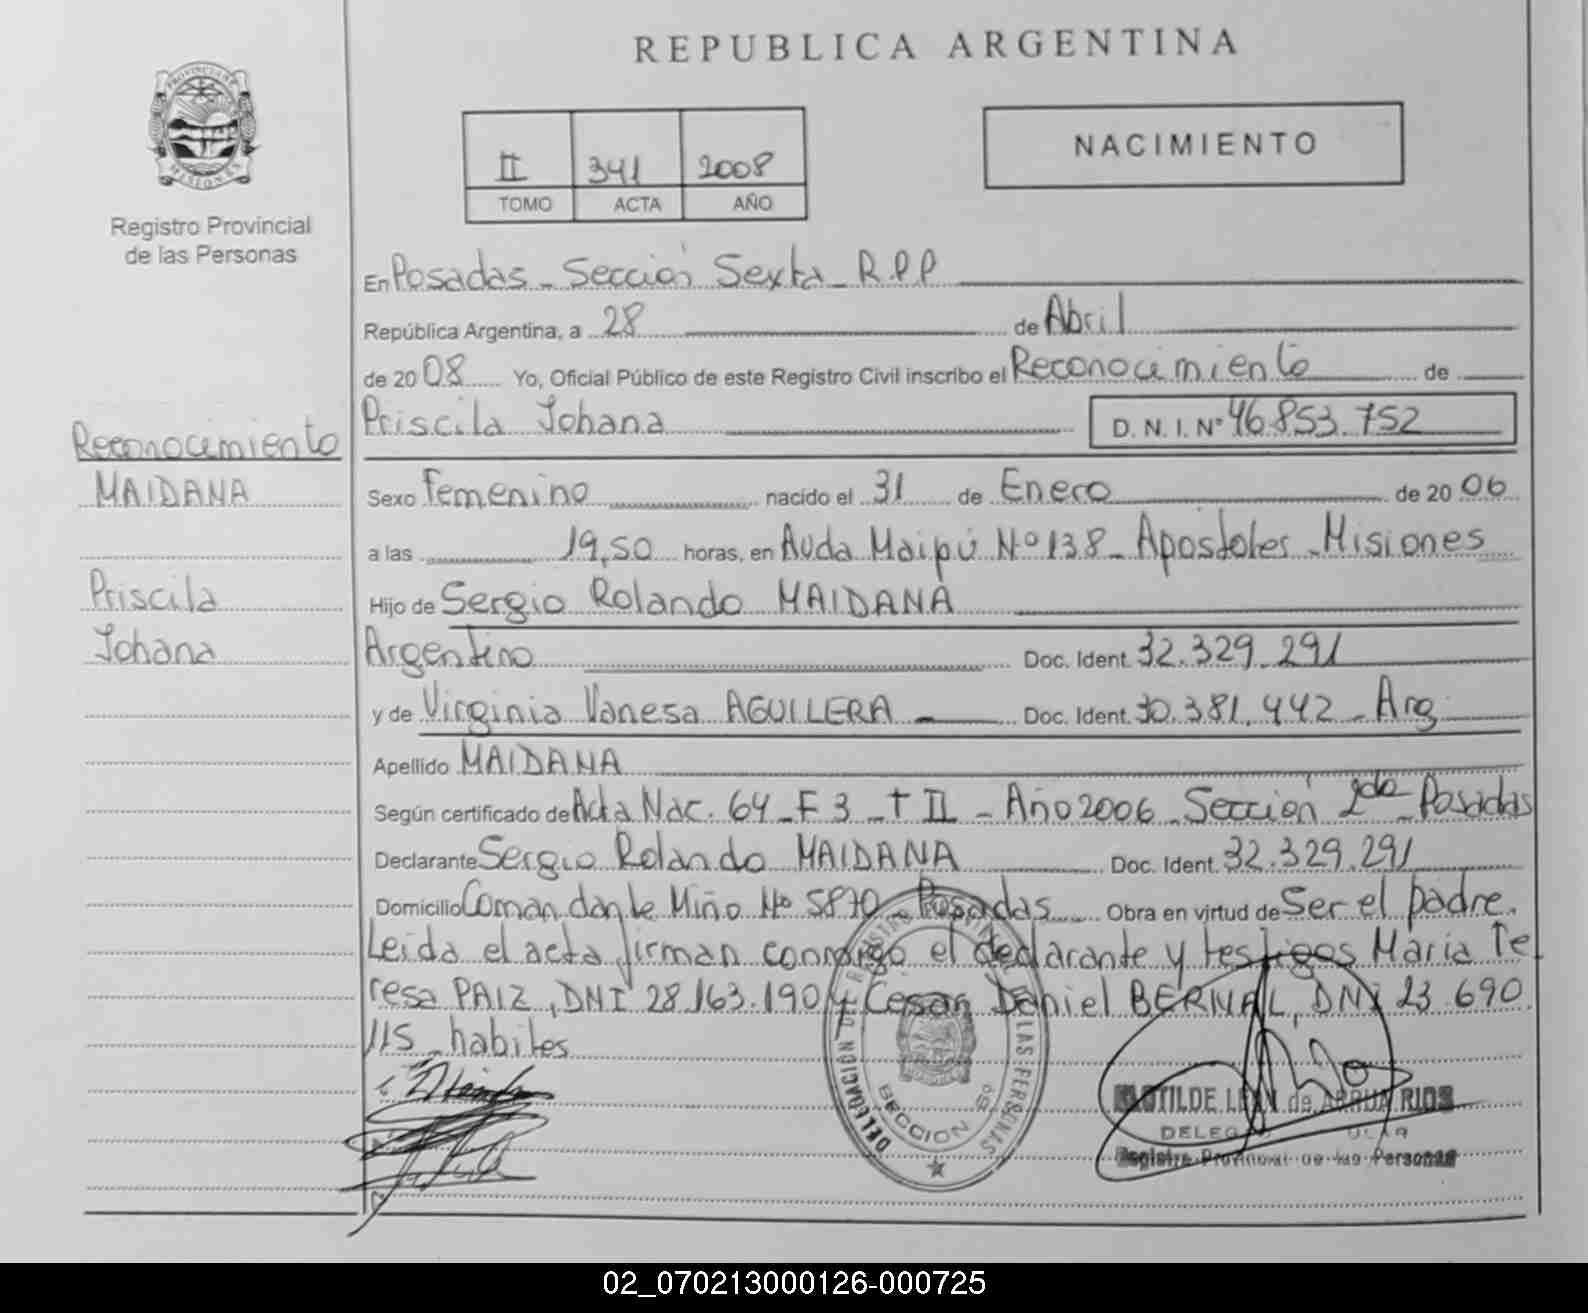 REPUBLICA ARGENTINA
PROVINCIA DE
MISIONES
Registro Provincial
de las Personas
II 341 2008
TOMO ACTA AÑO
NACIMIENTO
En Posadas - Sección Sexta - R.P.P
República Argentina, a 28 de Abril
de 2008 Yo, Oficial Público de este Registro Civil inscribo el Reconocimiento de
Priscila Johana D. N. I. Nº 46.853.752
Reconocimiento
MAIDANA
Priscila
Johana
Sexo Femenino nacido el 31 de Enero de 2006
a las 19,50 horas, en Avda Maipú Nº 138 - Apostoles - Misiones
Hijo de Sergio Rolando MAIDANA
Argentino Doc. Ident. 32.329.291
y de Virginia Vanesa AGUILERA - Doc. Ident. 30.381.442 - Arg
Apellido MAIDANA
Según certificado de Acta Nac. 64 - F 3 - T II - Año 2006 - Sección 2da - Posadas
Declarante Sergio Rolando MAIDANA Doc. Ident. 32.329.291
Domicilio Comandante Miño Nº 5870 - Posadas Obra en virtud de Ser el padre.
Leida el acta firman conmigo el declarante y testigos Maria Te
resa PAIZ, DNI 28.163.190 y Cesar Daniel BERNAL, DNI 23.690.
115 - habiles
DELEGACION DEL REGISTRO PROVINCIAL DE LAS PERSONAS
SECCION 6º
CLOTILDE LEON de ARRUA RIOS
Registro Provincial de las Personas
02_070213000126-000725